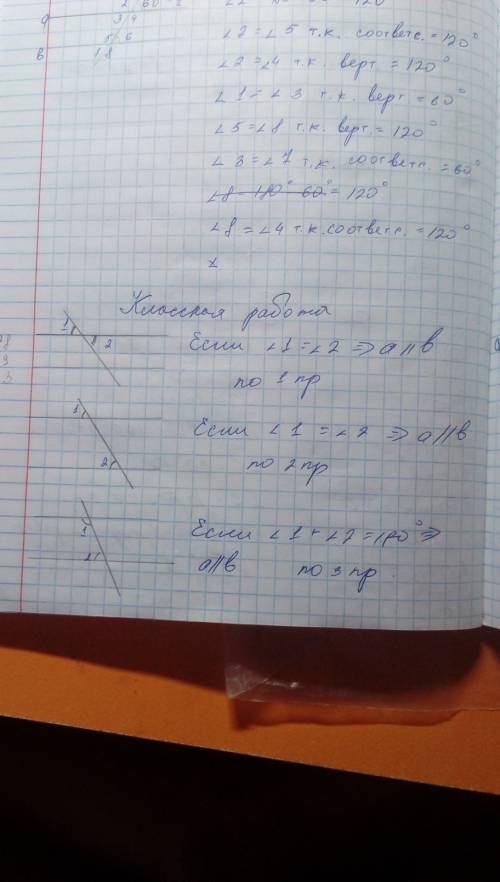 ∠2 = ∠5 т.к. соответс. = 120°
∠2 = ∠4 т.к. верт. = 120°
∠1 = ∠3 т.к. верт. = 60°
∠5 = ∠8 т.к. верт. = 120°
∠3 = ∠7 т.к. соответс. = 60°
∠8 = 180° - 60° = 120°
∠8 = ∠4 т.к. соответс. = 120°
Классная работа
1 2
Если ∠1 = ∠2 ⇒ a || b
по 1 пр
1
2
Если ∠1 = ∠2 ⇒ a || b
по 2 пр
1
2
Если ∠1 + ∠2 = 180° ⇒
a || b по 3 пр.